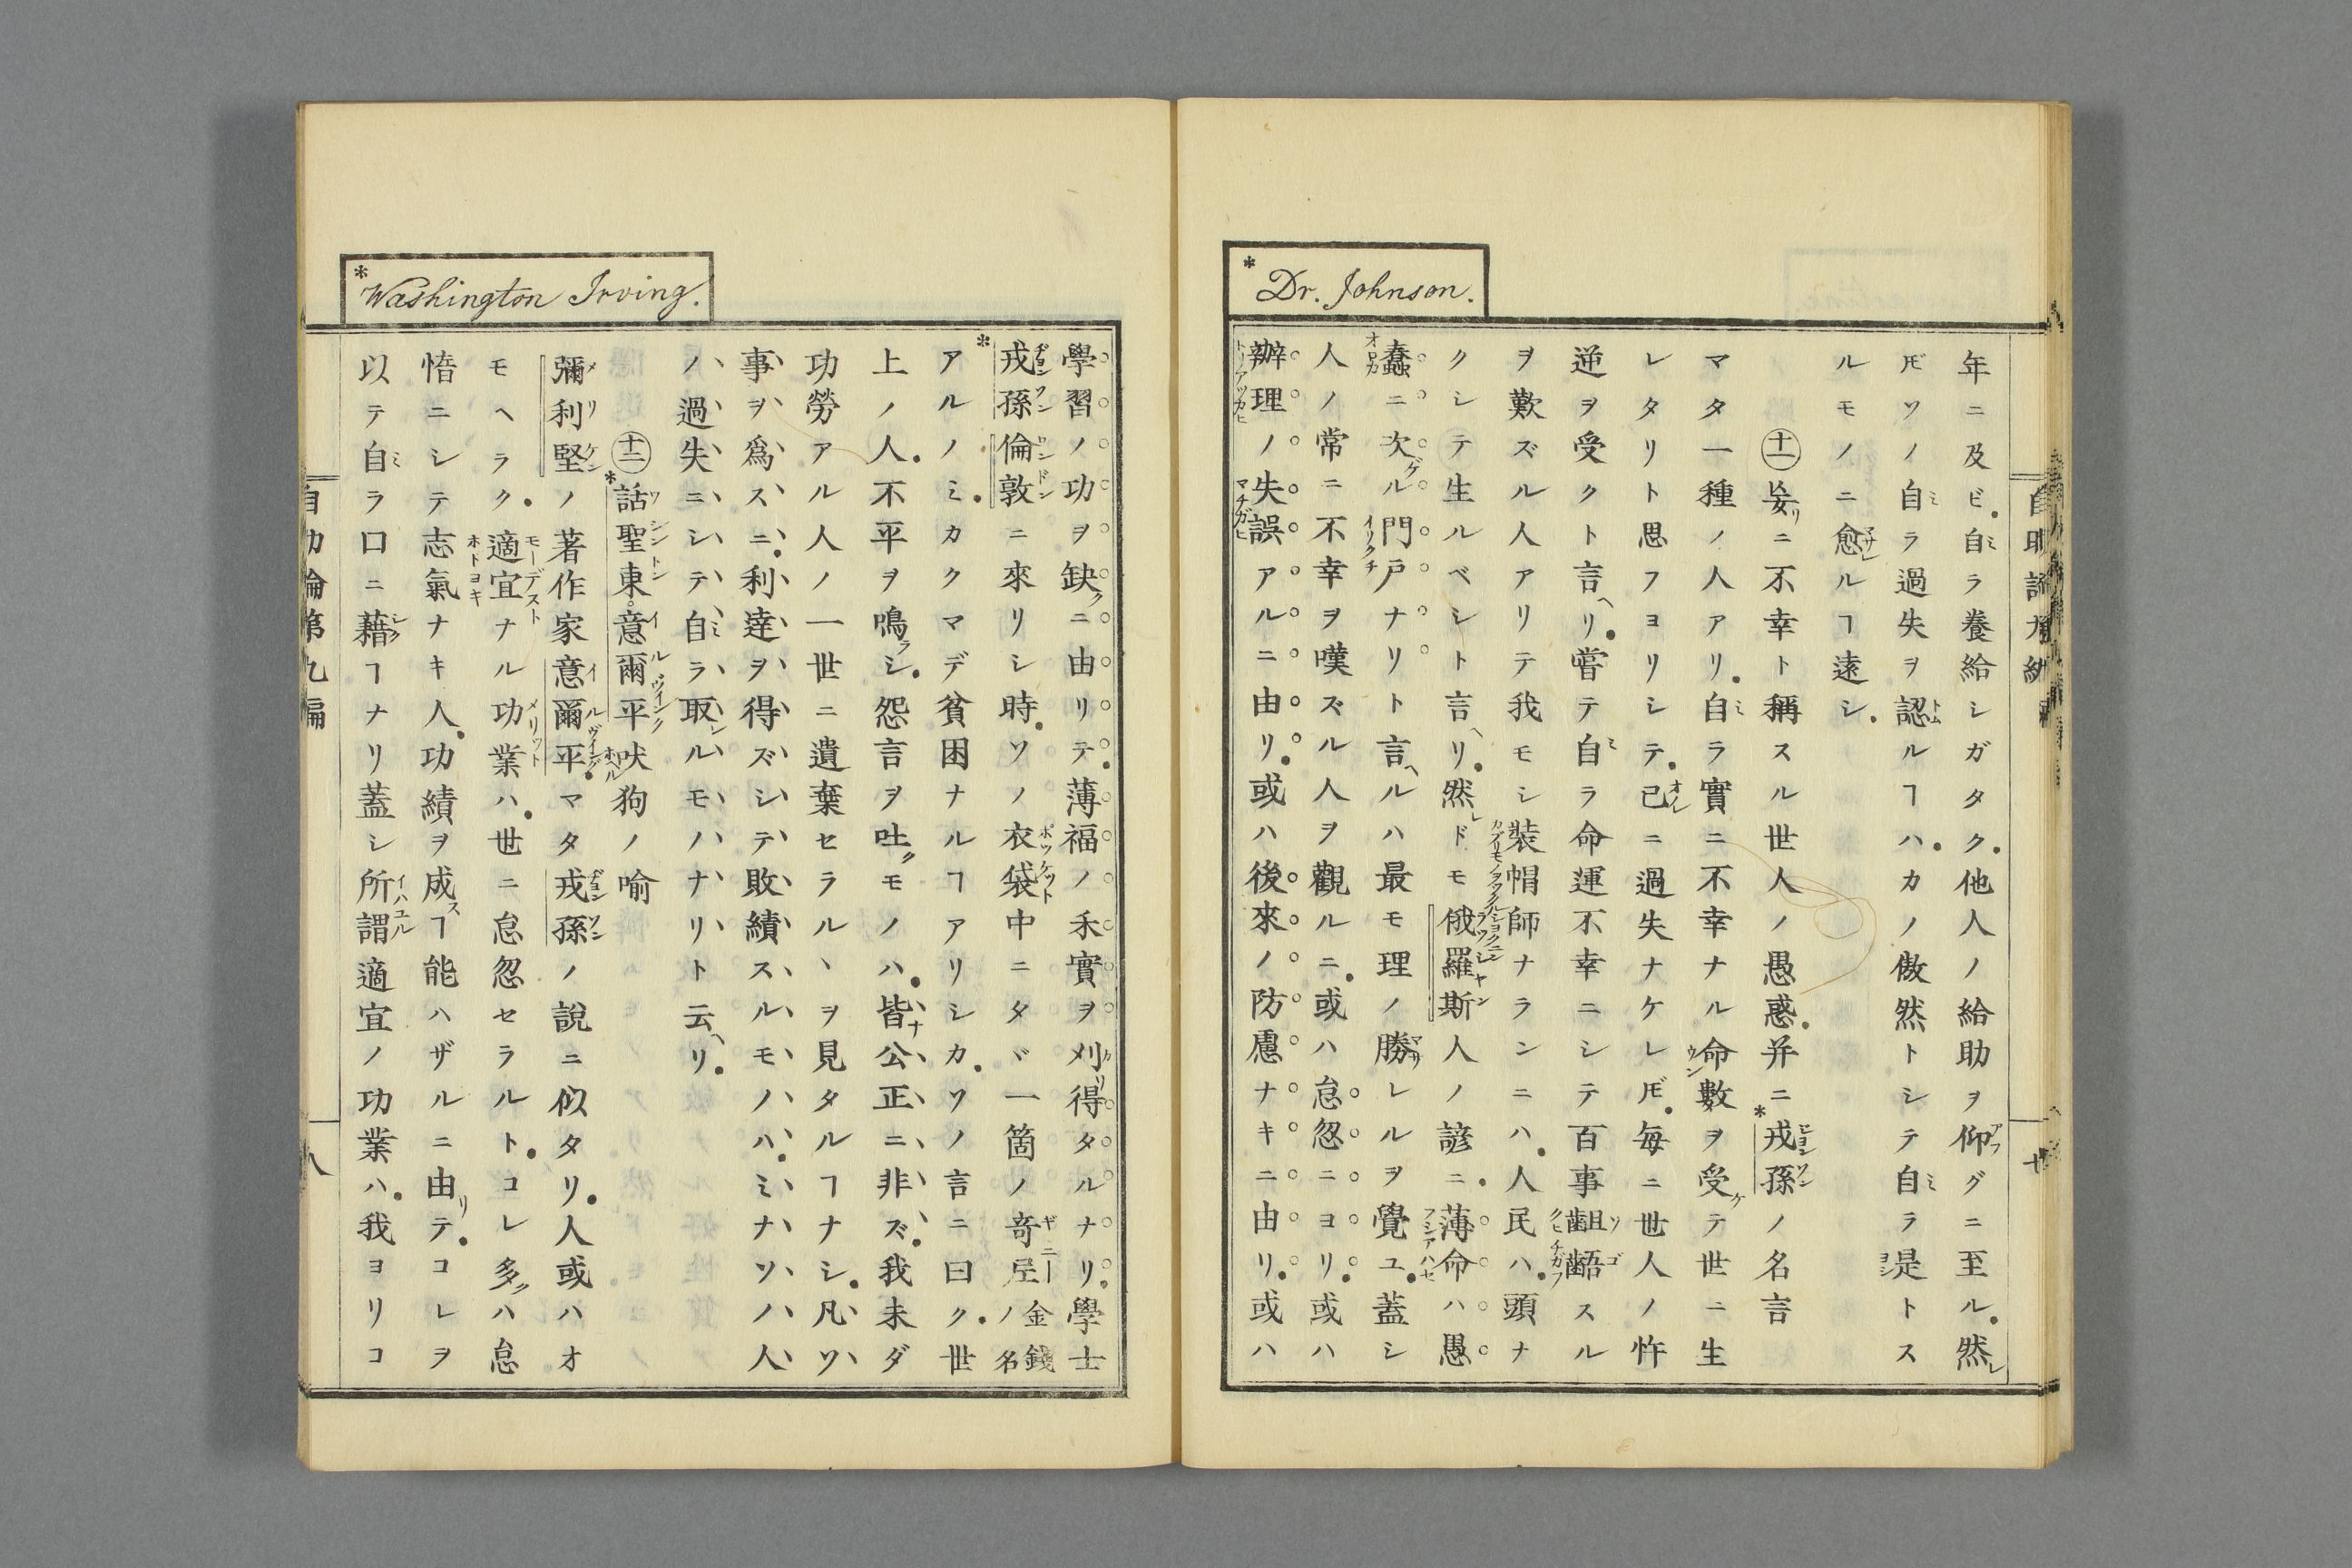 *Dr. Johnson.
年ニ及ビ自ラ養給シガタク他人ノ給助ヲ仰グニ至ル然
𪜈ソノ自ラ過失ヲ認ルヿハカノ傲然トシテ自ラ是トス
ルモノニ愈ルヿ遠シ
㊉一妄リニ不幸ト稱スル世人ノ愚惑并ニ*戎孫ノ名言
マタ一種ノ人アリ自ラ實ニ不幸ナル命數ヲ受ケテ世ニ生
レタリト思フヨリシテ己ニ過失ナケレ𪜈毎ニ世人ノ忤
逆ヲ受クト言ヘリ嘗テ自ラ命運不幸ニシテ百事齟齬スル
ヲ歎ズル人アリテ我モシ裝帽師ナランニハ人民ハ頭ナ
クシテ生ルベシト言ヘリ然レドモ俄羅斯人ノ諺ニ薄命ハ愚
蠢ニ次グル門戸ナリト言ヘルハ最モ理ノ勝レルヲ覺ユ蓋シ
人ノ常ニ不幸ヲ嘆ズル人ヲ觀ルニ或ハ怠忽ニヨリ或ハ
辦理ノ失誤アルニ由リ或ハ後來ノ防慮ナキニ由リ或ハ
*Washington Irving.
學習ノ功ヲ缺クニ由リテ薄福ノ禾實ヲ刈リ得タルナリ學士
*戎孫倫敦ニ來リシ時ソノ衣袋中ニタヾ一箇ノ竒尼金錢ノ名
アルノミカクマデ貧困ナルヿアリシカソノ言ニ曰ク世
上ノ人不平ヲ鳴ラシ怨言ヲ吐クモノハ皆ナ公正ニ非ズ我未ダ
功勞アル人ノ一世ニ遺棄セラルヽヲ見タルヿナシ凡ソ
事ヲ爲スニ利達ヲ得ズシテ敗績スルモノハミナソノ人
ノ過失ニシテ自ラ取ルモノナリト云ヘリ
㊉二*話聖東意爾平吠狗ノ喻
彌利堅ノ著作家意爾平マタ戎孫ノ說ニ似タリ人或ハオ
モヘラク適宜ナル功業ハ世ニ怠忽セラルトコレ多クハ怠
惰ニシテ志氣ナキ人功績ヲ成スヿ能ハザルニ由リテコレヲ
以テ自ラ口ニ藉ヿナリ蓋シ所謂適宜ノ功業ハ我ヨリコ